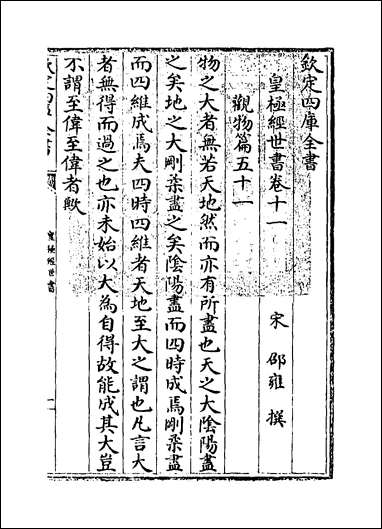 欽定四庫全書
皇極經世書卷十一
宋 邵雍 撰
觀物篇五十一
物之大者無若天地然而亦有所盡也天之大陰陽盡
之矣地之大剛柔盡之矣陰陽盡而四時成焉剛柔盡
而四維成焉夫四時四維者天地至大之謂也凡言大
者無得而過之也亦未始以大為自得故能成其大豈
不謂至偉至偉者歟
皇極經世書